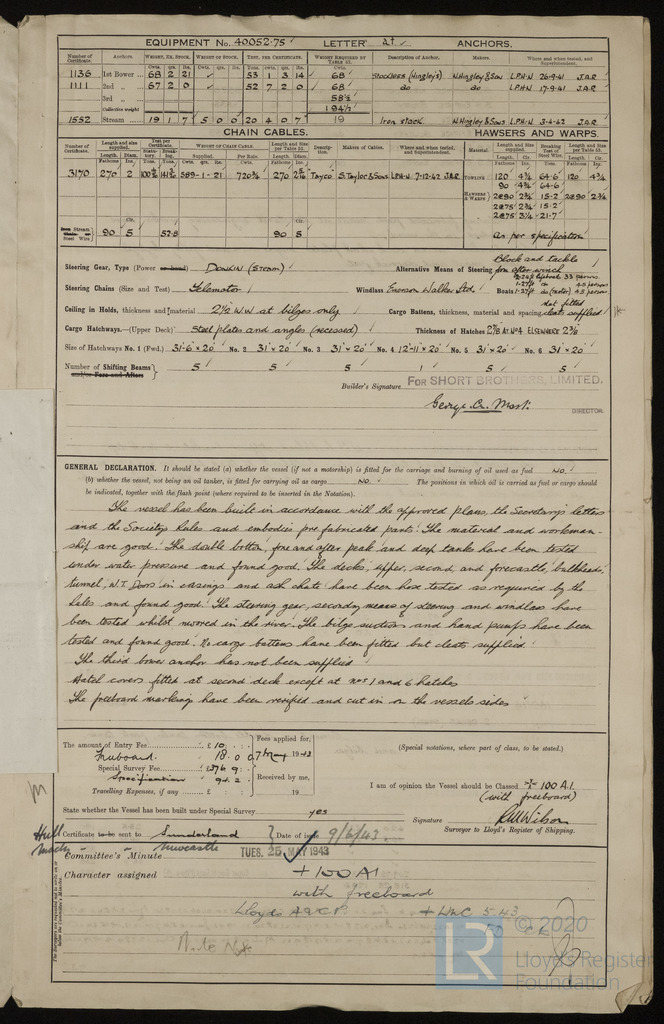 EQUIPMENT No. 40052.75 LETTER at ANCHORS.
Number of Certificate. Anchors. WEIGHT, EX. STOCK. WEIGHT OF STOCK. TEST, PER CERTIFICATE. WEIGHT REQUIRED BY TABLE 53. Description of Anchor. Makers. Where and when tested, and Superintendent.
1136 1st Bower 68 2 21 53 1 3 14 68 Stockless (Hingley's) N. Hingley & Son L.P.H-N 26-9-41 J.A.R
1111 2nd 67 2 0 52 7 2 0 68 do do L.P.H-N 17-9-41 J.A.R
3rd 58½
Collective weight 194½
1552 Stream 19 1 7 5 0 0 20 4 0 7 19 Iron stock. N. Hingley & Sons L.P.H-N 3-4-42 J.A.R
CHAIN CABLES. HAWSERS AND WARPS.
3170 270 2 589-1-21 720¾ 270 "Tayco" S. Taylor & Sons LPH-N 7-12-42 J.A.R
TOWLINE 120 4¾ 64.6 120 4¾
90 4¾ 64.6
HAWSERS & WARPS 2@90 2¾ 15.2 2@90 2¾
2@75 2¾ 15.2
2@75 3¼ 21.7
Stream Steel Wire 90 5 57.8 90 5 as per specification
Block and tackle
Steering Gear, Type (Power or hand) Donkin (Steam) Alternative Means of Steering from after winch
Steering Chains (Size and Test) Telemotor Windlass Emerson Walker Ltd. Boats
not fitted
Ceiling in Holds, thickness and material 2½ W.W at bilges only Cargo Battens, thickness, material and spacing cleats supplied
Cargo Hatchways.—(Upper Deck) Steel plates and angles (recessed) Thickness of Hatches 2⅞ AT No4 ELSEWHERE 2⅜
Size of Hatchways No. 1 (Fwd.) 31'-6" x 20' No. 2 31' x 20' No. 3 31' x 20' No. 4 12'-11" x 20' No. 5 31' x 20' No. 6 31' x 20'
Number of Shifting Beams and/or Fore and Afters 5 5 5 1 5 5
Builder's Signature FOR SHORT BROTHERS, LIMITED.
DIRECTOR.
GENERAL DECLARATION. It should be stated (a) whether the vessel (if not a motorship) is fitted for the carriage and burning of oil used as fuel NO.
(b) whether the vessel, not being an oil tanker, is fitted for carrying oil as cargo NO. The positions in which oil is carried as fuel or cargo should
be indicated, together with the flash point (where required to be inserted in the Notation).
The vessel has been built in accordance with the approved plans, the Secretary's letters
and the Society's Rules and embodies pre fabricated parts. The material and workman-
ship are good. The double bottom, fore and after peak and deep tanks have been tested
under water pressure and found good. The decks, upper, second, and forecastle, bulkheads,
tunnel, W.T. Doors in casings and ash shute have been hose tested as required by the
Rules and found good. The steering gear, secondary means of steering and windlass have
been tested whilst moored in the river. The bilge suctions and hand pumps have been
tested and found good. No cargo battens have been fitted but cleats supplied.
The third bower anchor has not been supplied
Hatch covers fitted at second deck except at Nos 1 and 6 hatches
The freeboard markings have been verified and cut in on the vessels sides
The amount of Entry Fee £ 10 Fees applied for, (Special notations, where part of class, to be stated.)
Freeboard. 18. 0. 0 7 May 1943
Special Survey Fee £ 376 9 Received by me,
Specification 94.2 I am of opinion the Vessel should be Classed +100 A.1.
Travelling Expenses, if any £ 19 (with freeboard)
State whether the Vessel has been built under Special Survey yes
Signature R.W. Wilson
Surveyor to Lloyd's Register of Shipping.
Hull Certificate to be sent to Sunderland Date of issue 9/6/43.
Mchy Newcastle
Committee's Minute TUES. 25 MAY 1943
Character assigned +100 A1
with freeboard
Lloyds A&CP + LMC 5.43
© 2020
LR Lloyd's Register Foundation